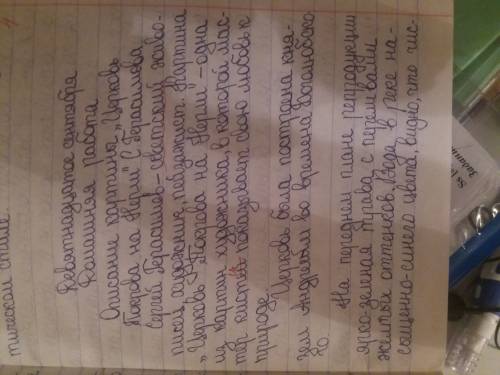 тическом стиле.
Девятнадцатое сентября
Домашняя работа
Описание картины „Церковь
Покрова на Нерли" С. Герасимова
Сергей Герасимов – советский живо-
писец, художник, пейзажист. Картина
„Церковь Покрова на Нерли" – одна
из картин художника, в которой мас-
тер кисти показывает свою любовь к
природе.
Церковь была построена кня-
зем Андреем во времена
На переднем плане репродукции
ярко-зелёная трава с перемевами
желтых оттенков. Вода в реке на-
сыщенно-синего цвета, видно, что чис-